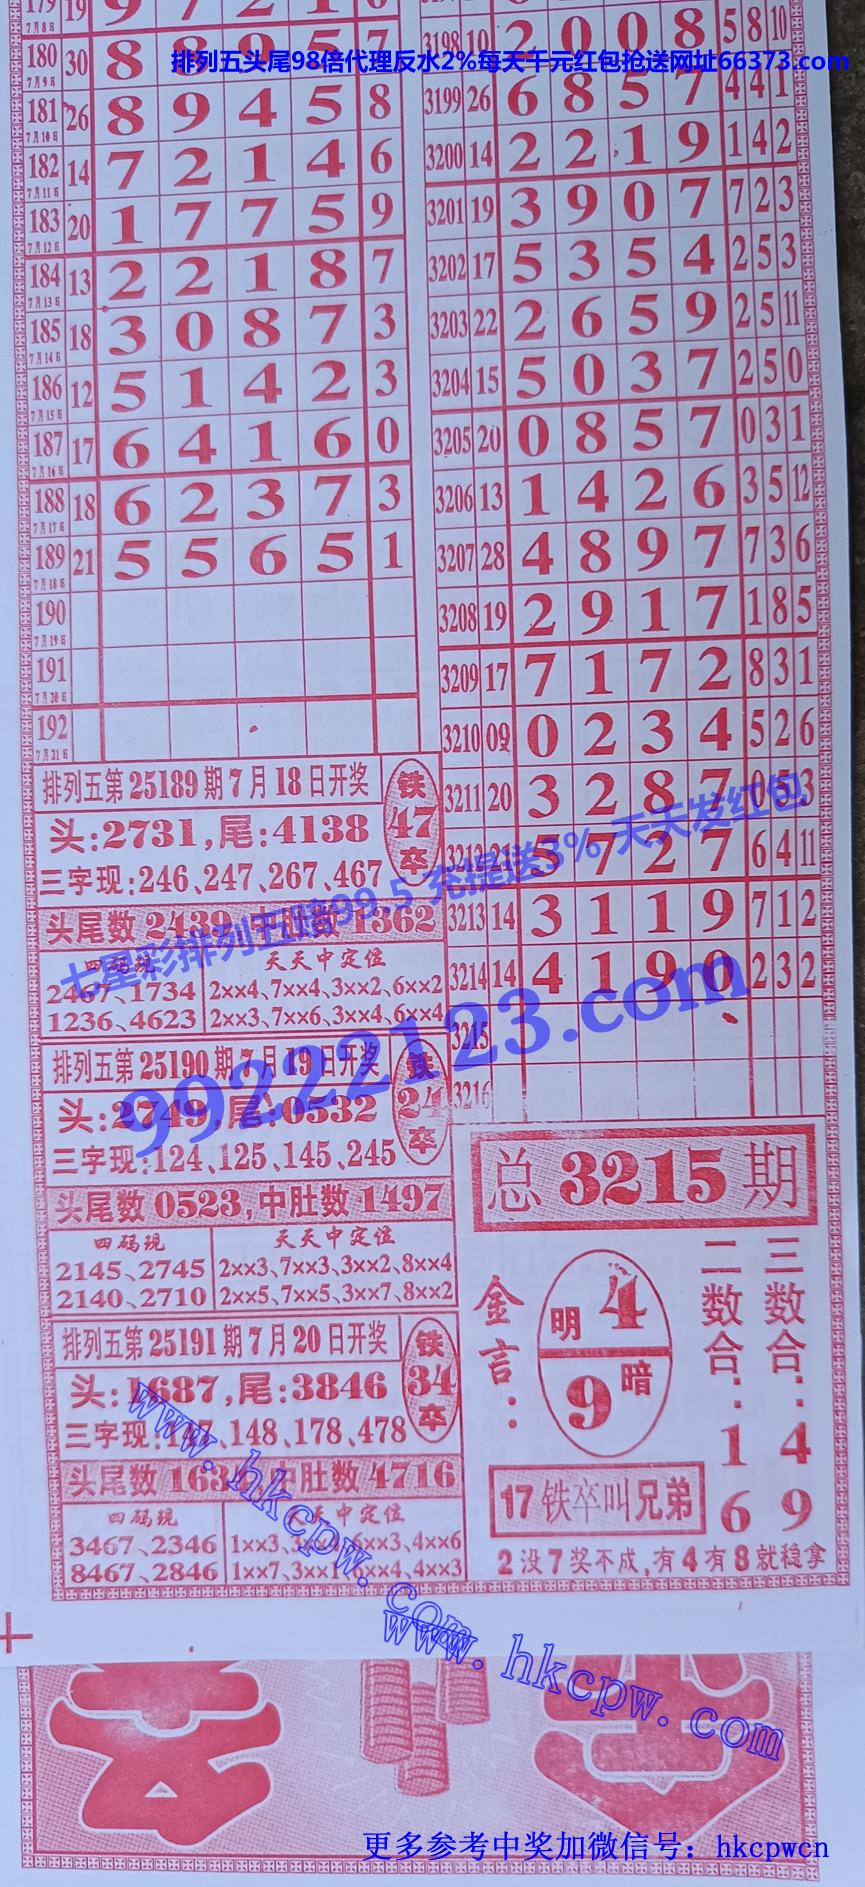 179 19 9 7 2 1 0
7月8日
180 30 8 8 9 5 7
7月9日
排列五头尾98倍代理反水2%每天千元红包抢送网址66373.com
181 26 8 9 4 5 8
7月10日
182 14 7 2 1 4 6
7月11日
183 20 1 7 7 5 9
7月12日
184 13 2 2 1 8 7
7月13日
185 18 3 0 8 7 3
7月14日
186 12 5 1 4 2 3
7月15日
187 17 6 4 1 6 0
7月16日
188 18 6 2 3 7 3
7月17日
189 21 5 5 6 5 1
7月18日
190
7月19日
191
7月20日
192
7月21日
3198 10 2 0 0 8 5 8 10
3199 26 6 8 5 7 4 4 1
3200 14 2 2 1 9 1 4 2
3201 19 3 9 0 7 7 2 3
3202 17 5 3 5 4 2 5 3
3203 22 2 6 5 9 2 5 11
3204 15 5 0 3 7 2 5 0
3205 20 0 8 5 7 0 3 1
3206 13 1 4 2 6 3 5 12
3207 28 4 8 9 7 7 3 6
3208 19 2 9 1 7 1 8 5
3209 17 7 1 7 2 8 3 1
3210 09 0 2 3 4 5 2 6
3211 20 3 2 8 7 0 5 3
3212 21 5 7 2 7 6 4 11
3213 14 3 1 1 9 7 1 2
3214 14 4 1 9 0 2 3 2
3215
3216
排列五第25189期7月18日开奖
铁
47
卒
头:2731,尾:4138
三字现:246、247、267、467
头尾数2439,中肚数1362
四码现 天天中定位
2467、1734 2××4、7××4、3××2、6××2
1236、4623 2××3、7××6、3××4、6××4
七星彩排列五 99.5 充提送3% 天天发红包
99222123.com
排列五第25190期7月19日开奖
铁
24
卒
头:2749,尾:0532
三字现:124、125、145、245
头尾数0523,中肚数1497
四码现 天天中定位
2145、2745 2××3、7××3、3××2、8××4
2140、2710 2××5、7××5、3××7、8××2
排列五第25191期7月20日开奖
铁
34
卒
头:1687,尾:3846
三字现:147、148、178、478
头尾数163,中肚数4716
四码现 天天中定位
3467、2346 1××3、3××4、6××3、4××6
8467、2846 1××7、3××1、6××4、4××3
总3215期
金言:
明 4
9 暗
二数合:16
三数合:49
17铁卒叫兄弟
2没7奖不成,有4有8就稳拿
www.hkcpw.com
www.hkcpw.com
更多参考中奖加微信号：hkcpwcn